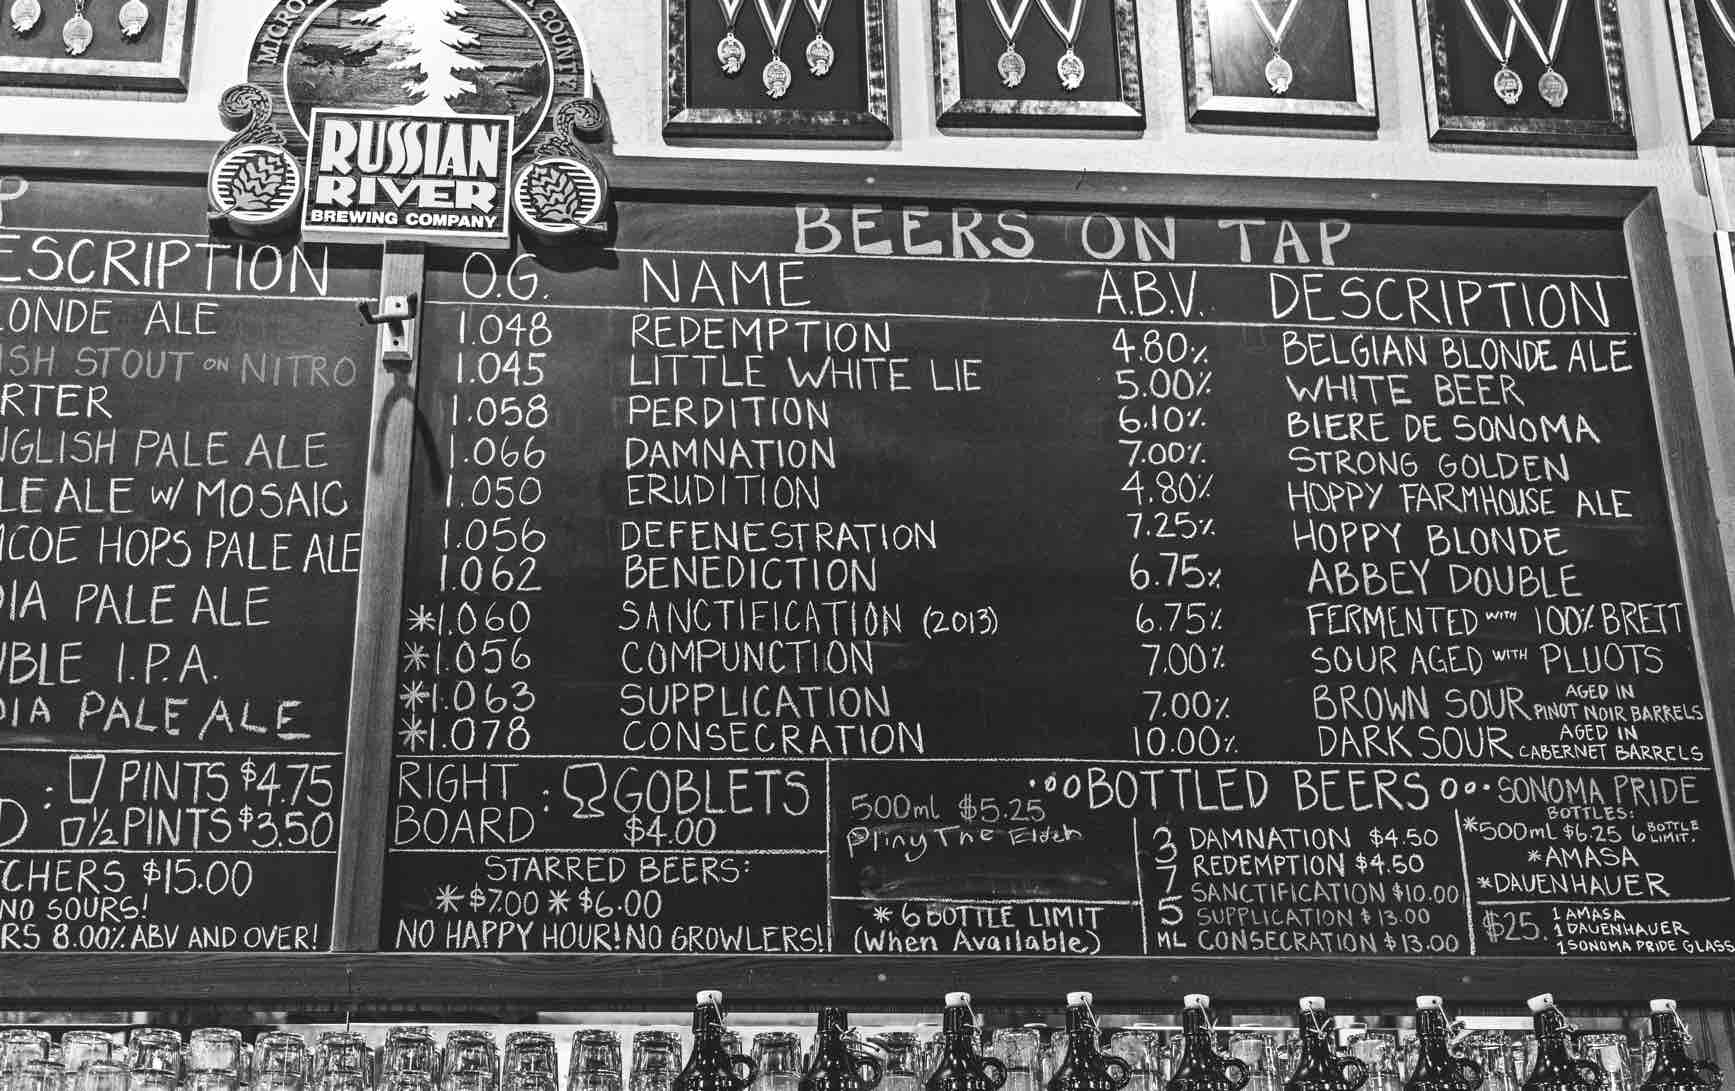 COUNTY
RUSSIAN
RIVER
BREWING COMPANY
ESCRIPTION
LONDE ALE
ISH STOUT ON NITRO
RTER
NGLISH PALE ALE
LE ALE W/ MOSAIC
MCOE HOPS PALE ALE
DIA PALE ALE
UBLE I.P.A.
DIA PALE ALE
D: PINTS $4.75
½ PINTS $3.50
CHERS $15.00
NO SOURS!
RS 8.00% ABV AND OVER!
BEERS ON TAP
O.G. NAME A.B.V. DESCRIPTION
1.048 REDEMPTION 4.80% BELGIAN BLONDE ALE
1.045 LITTLE WHITE LIE 5.00% WHITE BEER
1.058 PERDITION 6.10% BIERE DE SONOMA
1.066 DAMNATION 7.00% STRONG GOLDEN
1.050 ERUDITION 4.80% HOPPY FARMHOUSE ALE
1.056 DEFENESTRATION 7.25% HOPPY BLONDE
1.062 BENEDICTION 6.75% ABBEY DOUBLE
*1.060 SANCTIFICATION (2013) 6.75% FERMENTED WITH 100% BRETT
*1.056 COMPUNCTION 7.00% SOUR AGED WITH PLUOTS
*1.063 SUPPLICATION 7.00% BROWN SOUR AGED IN PINOT NOIR BARRELS
*1.078 CONSECRATION 10.00% DARK SOUR AGED IN CABERNET BARRELS
RIGHT BOARD: GOBLETS
$4.00
STARRED BEERS:
* $7.00 * $6.00
NO HAPPY HOUR! NO GROWLERS!
BOTTLED BEERS
500ml $5.25
Pliny The Elder
* 6 BOTTLE LIMIT
(When Available)
375 ML
DAMNATION $4.50
REDEMPTION $4.50
SANCTIFICATION $10.00
SUPPLICATION $13.00
CONSECRATION $13.00
SONOMA PRIDE
BOTTLES:
*500ml $6.25 6 BOTTLE LIMIT.
*AMASA
*DAUENHAUER
$25. 1 AMASA
1 DAUENHAUER
1 SONOMA PRIDE GLASS